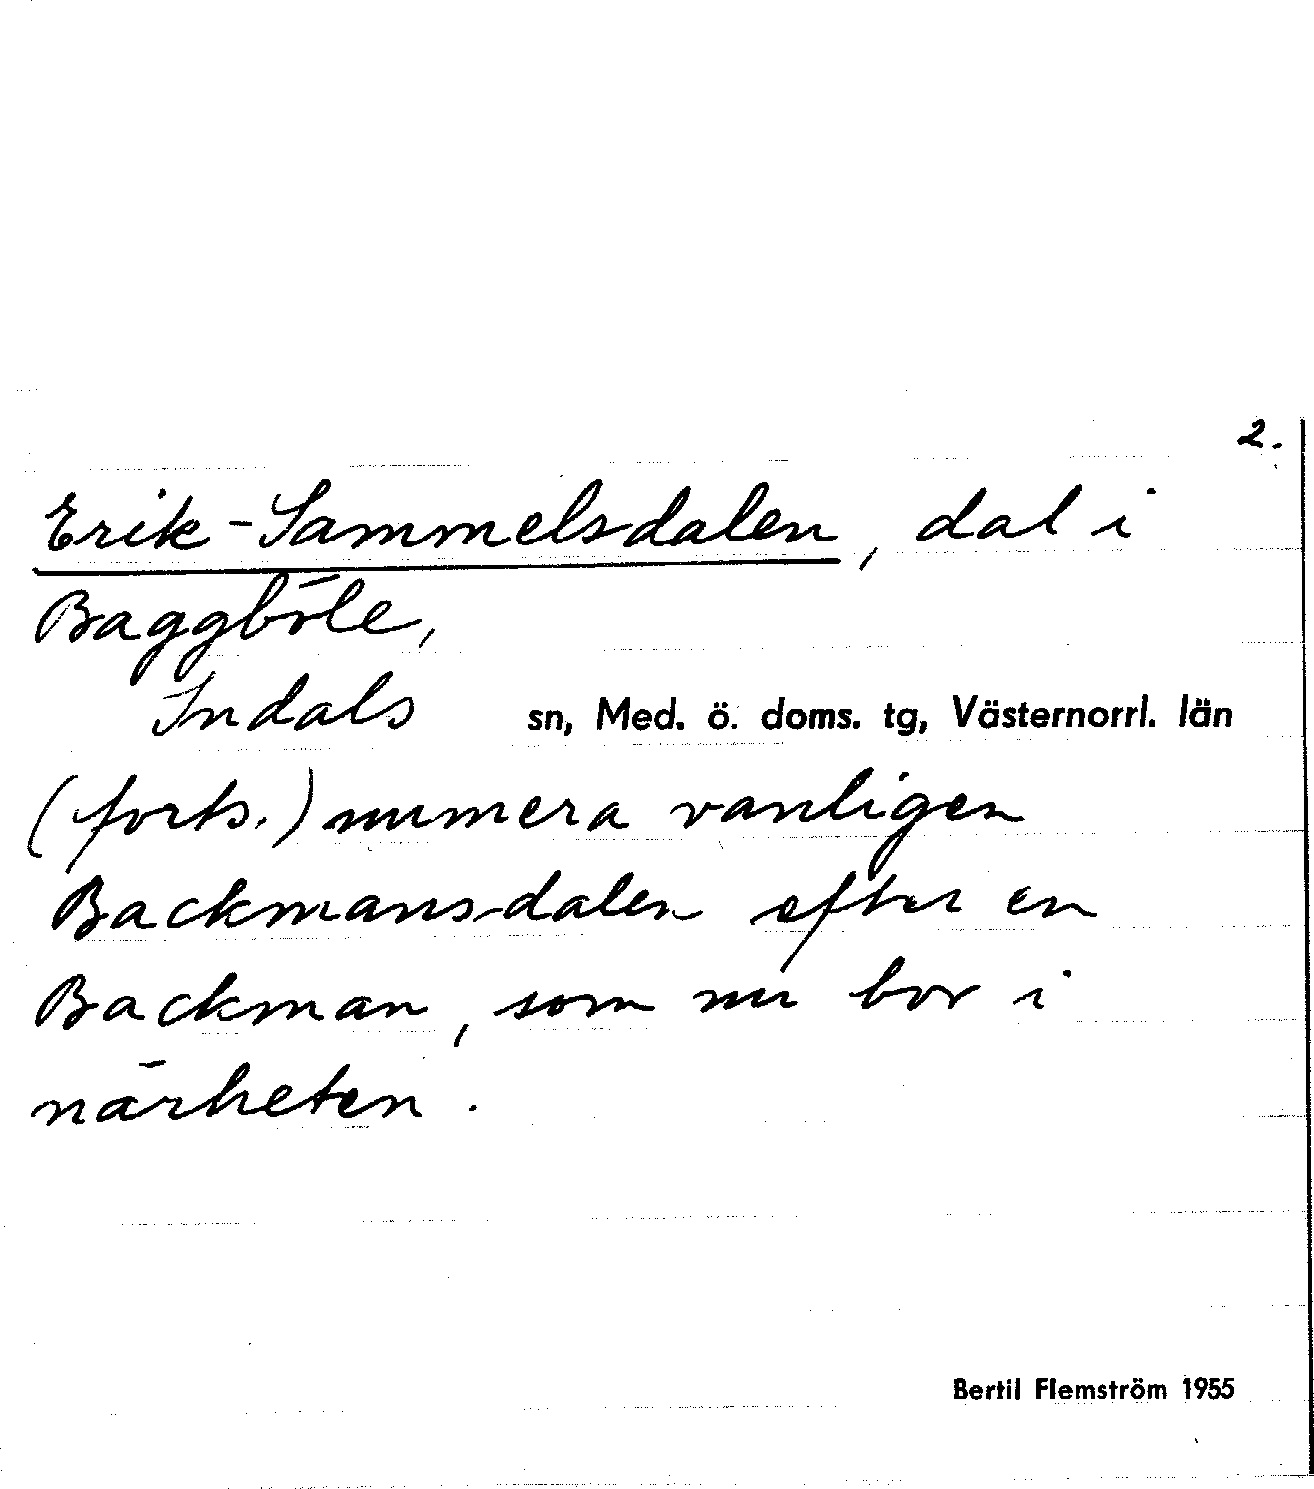 2.
Erik-Sammelsdalen, dal i
Baggböle,
Indals sn, Med. ö. doms. tg, Västernorrl. län
(forts.) numera vanligen
Backmans-dalen efter en
Backman, som nu bor i
närheten.
Bertil Flemström 1955